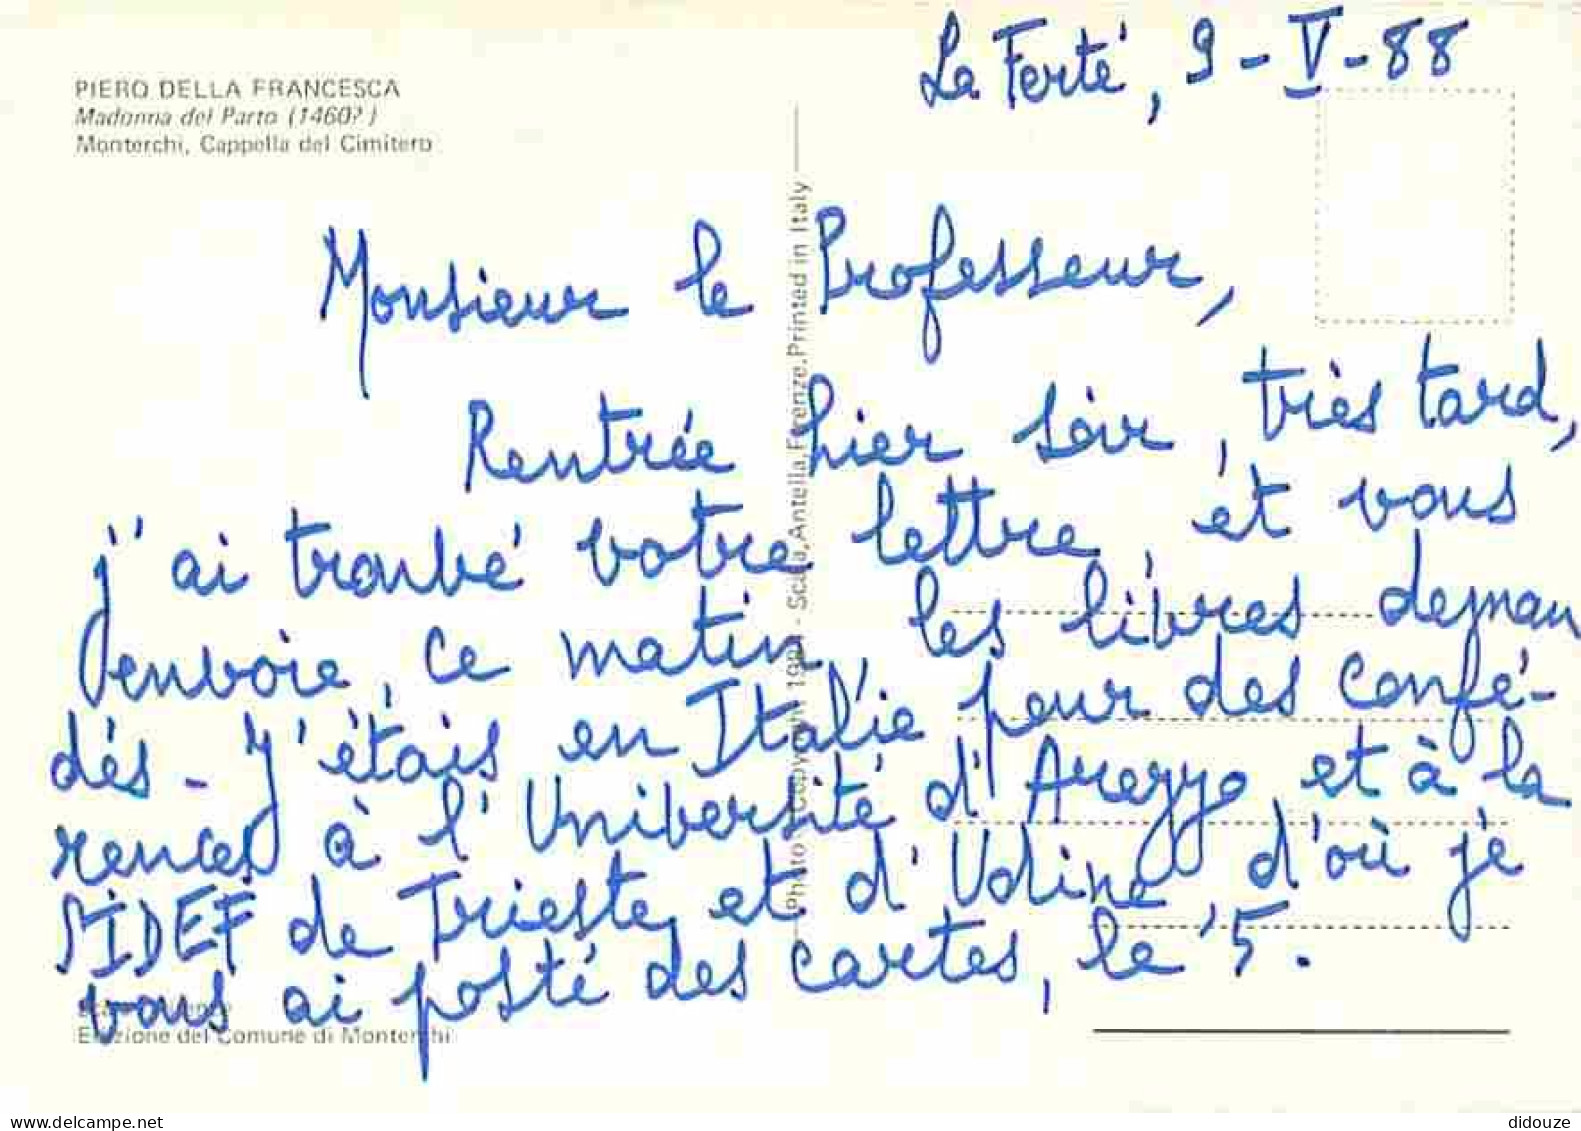 La Ferté, 9-V-88
PIERO DELLA FRANCESCA
Madonna del Parto (1460?)
Monterchi, Cappella del Cimitero
Monsieur le Professeur,
Rentrée hier soir, très tard,
j'ai trouvé votre lettre, et vous
envoie, ce matin, les livres deman
dés - J'étais en Italie pour des confé-
rences à l'Université d'Arezzo, et à la
SIDEF de Trieste, et d'Udine, d'où je
vous ai posté des cartes, le 5.
Edizione del Comune di Monterchi
Photo Copyright - Scala, Antella, Firenze. Printed in Italy
www.delcampe.net
didouze